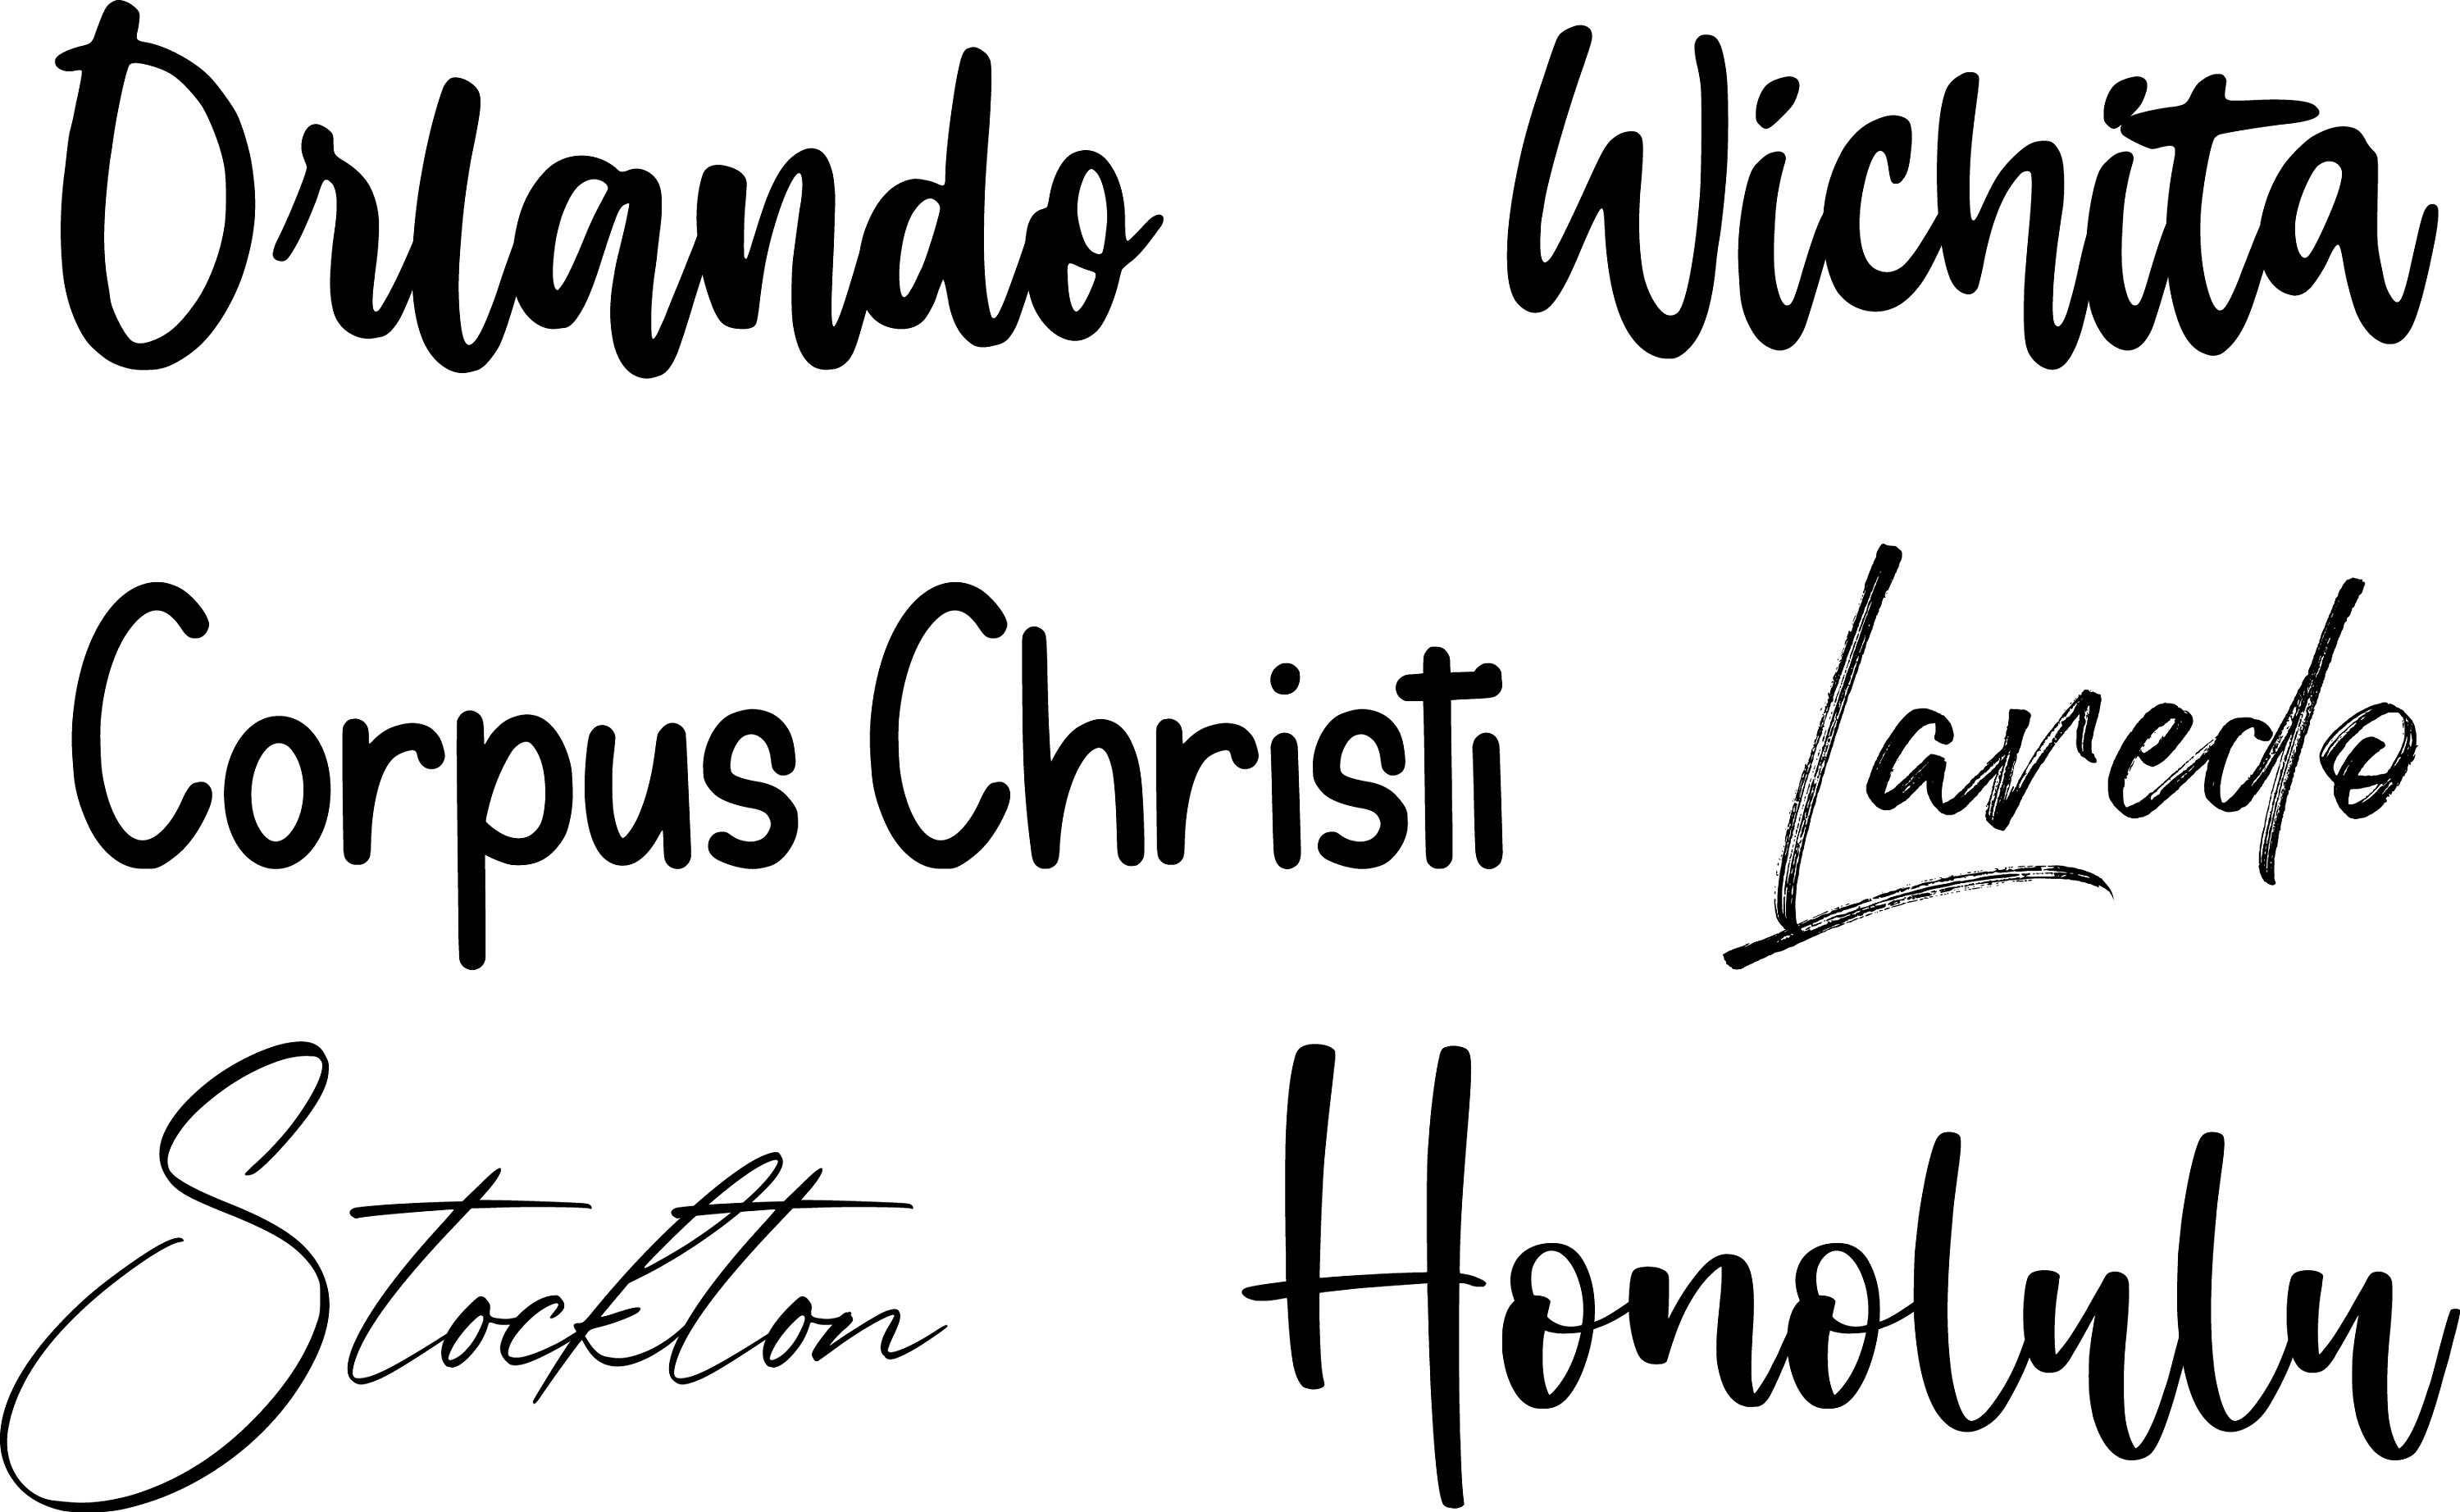 Orlando Wichita
Corpus Christi Laredo
Stockton Honolulu